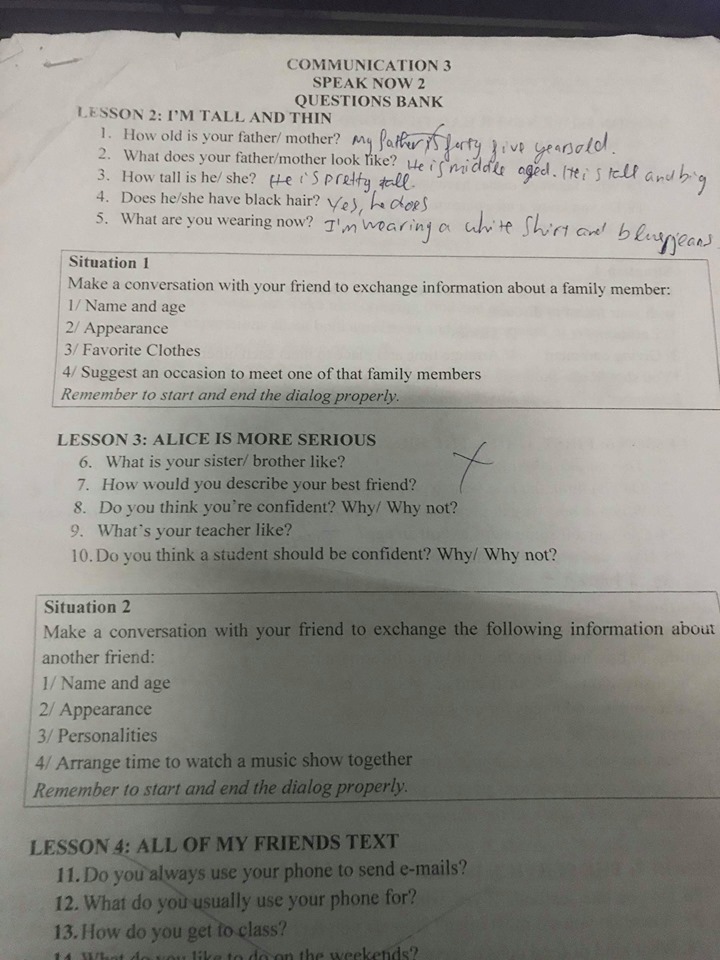 COMMUNICATION 3
SPEAK NOW 2
QUESTIONS BANK
LESSON 2: I'M TALL AND THIN
1. How old is your father/ mother? My father is forty five years old.
2. What does your father/mother look like? He is middle aged. He is tall and big
3. How tall is he/ she? He is pretty tall.
4. Does he/she have black hair? Yes, he does
5. What are you wearing now? I'm wearing a white shirt and blue jeans
Situation 1
Make a conversation with your friend to exchange information about a family member:
1/ Name and age
2/ Appearance
3/ Favorite Clothes
4/ Suggest an occasion to meet one of that family members
Remember to start and end the dialog properly.
LESSON 3: ALICE IS MORE SERIOUS
6. What is your sister/ brother like?
7. How would you describe your best friend?
8. Do you think you're confident? Why/ Why not?
9. What's your teacher like?
10. Do you think a student should be confident? Why/ Why not?
Situation 2
Make a conversation with your friend to exchange the following information about
another friend:
1/ Name and age
2/ Appearance
3/ Personalities
4/ Arrange time to watch a music show together
Remember to start and end the dialog properly.
LESSON 4: ALL OF MY FRIENDS TEXT
11. Do you always use your phone to send e-mails?
12. What do you usually use your phone for?
13. How do you get to class?
14. What do you like to do on the weekends?